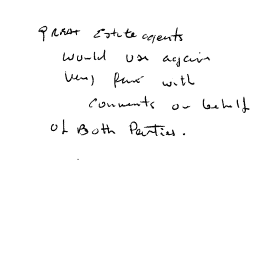 great Estate agents
would use again
Very fair with
comments on behalf
of Both Parties.